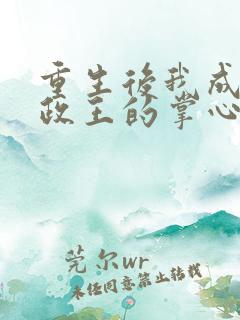 重生後我成
政王的掌心
莞尔wr
未经同意禁止转载